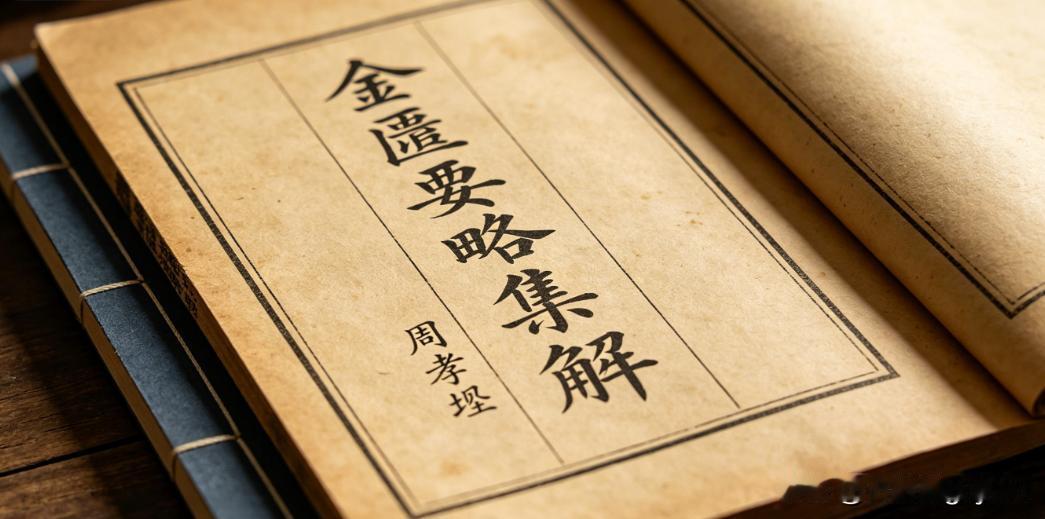 金匱要略集解
周孝垔